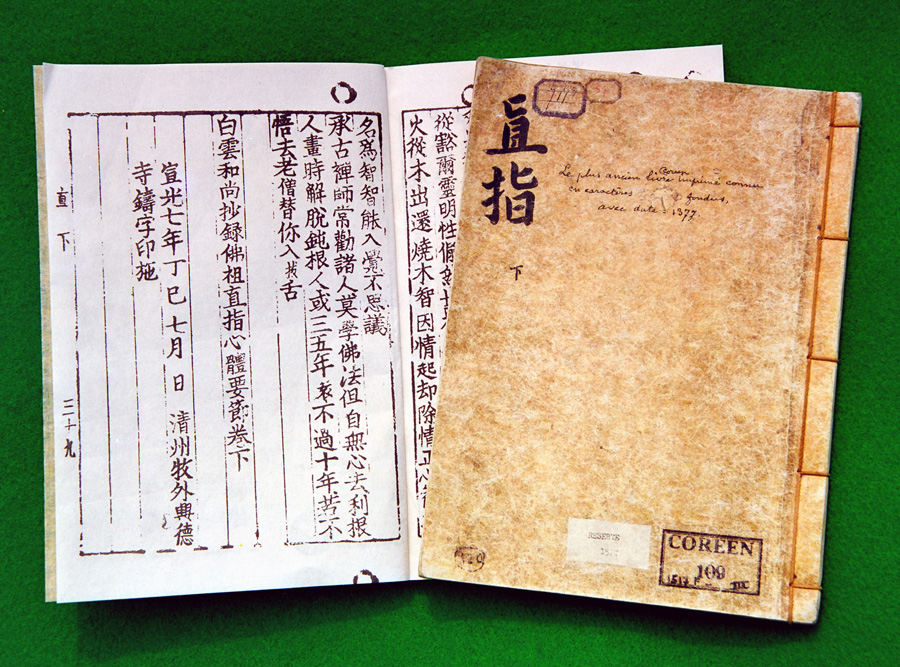 從豁爾靈明性
火從木出還燒木智因情起却除情
名爲智智能入覺不思議
承古禪師常勸諸人莫學佛法但自無心去利根
人畫時解脫鈍根人或三五年遠不過十年若不
悟去老僧替你入拔舌
白雲和尚抄録佛祖直指心體要節卷下
宣光七年丁巳七月 日 清州牧外興德
寺鑄字印施
直下 三十九
直指
下
Le plus ancien livre Coréen imprimé connu
en caractères fondus,
avec date = 1377
RESERVE
COREEN
109